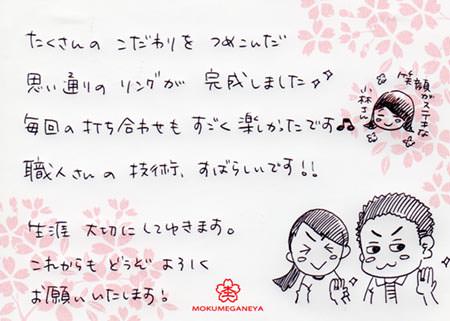 たくさんの こだわりを つめこんだ
思い通りの リングが 完成しました♪
毎回の打ち合わせも すごく楽しかったです♫
職人さんの 技術、すばらしいです!!
生涯 大切にしてゆきます。
これからも どうぞ よろしく
お願いいたします!
笑顔がステキな
小林さん
MOKUMEGANEYA